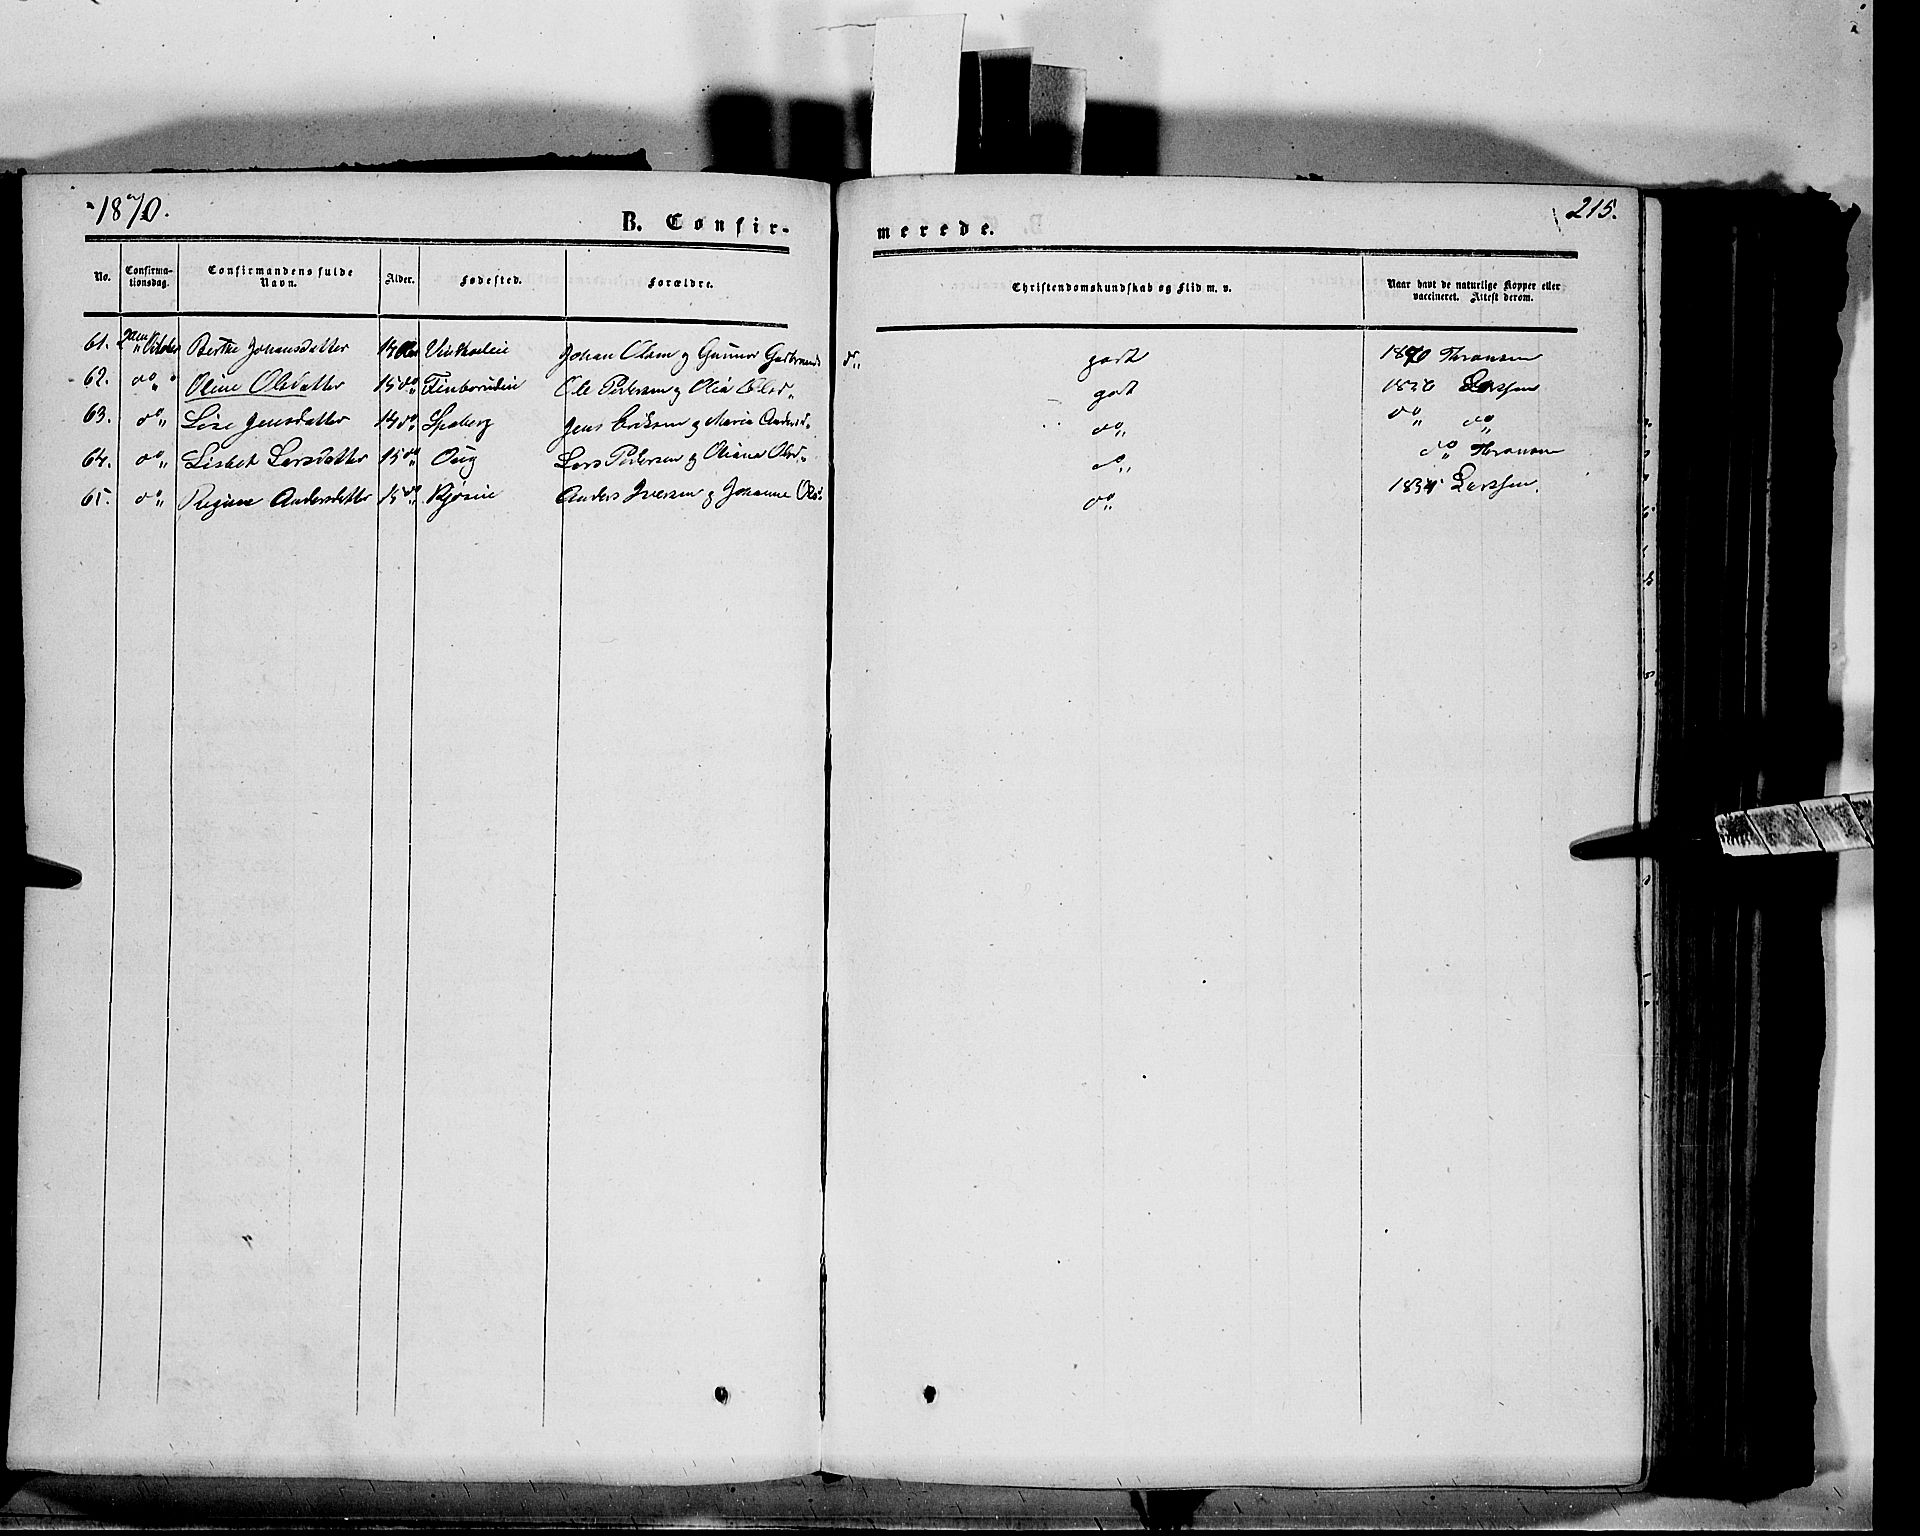 1870.
B. Confir-
merede.
215.
No. Confirma-tionsdag. Confirmandens fulde Navn. Alder. Fødested. Forældre. Christendomskundskab og Flid m. v. Naar havt de naturlige Kopper eller vaccineret. Attest derom.
61. 2den October Berthe Johansdatter 14 Johan Olsen og Gunnor Gudbrands d„ godt 1870 Thransen
62. do„ Oline Olsdatter 15 do„ Finborudeie Ole Pedersen og Olia Olsd„ godt 1856 Larssen
63. do„ Lise Jensdatter 14 do„ Spaberg Jens Eriksen og Maria Andersd„ do„ do„ do„
64. do„ Lisbet Larsdatter 15 do„ Oug Lars Pedersen og Oliana Olsd„ do„ do„ Thransen
65. do„ Regine Andersdatter 15 do„ Kjøseie Anders Iversen og Johanne Olsd. do„ Larssen.